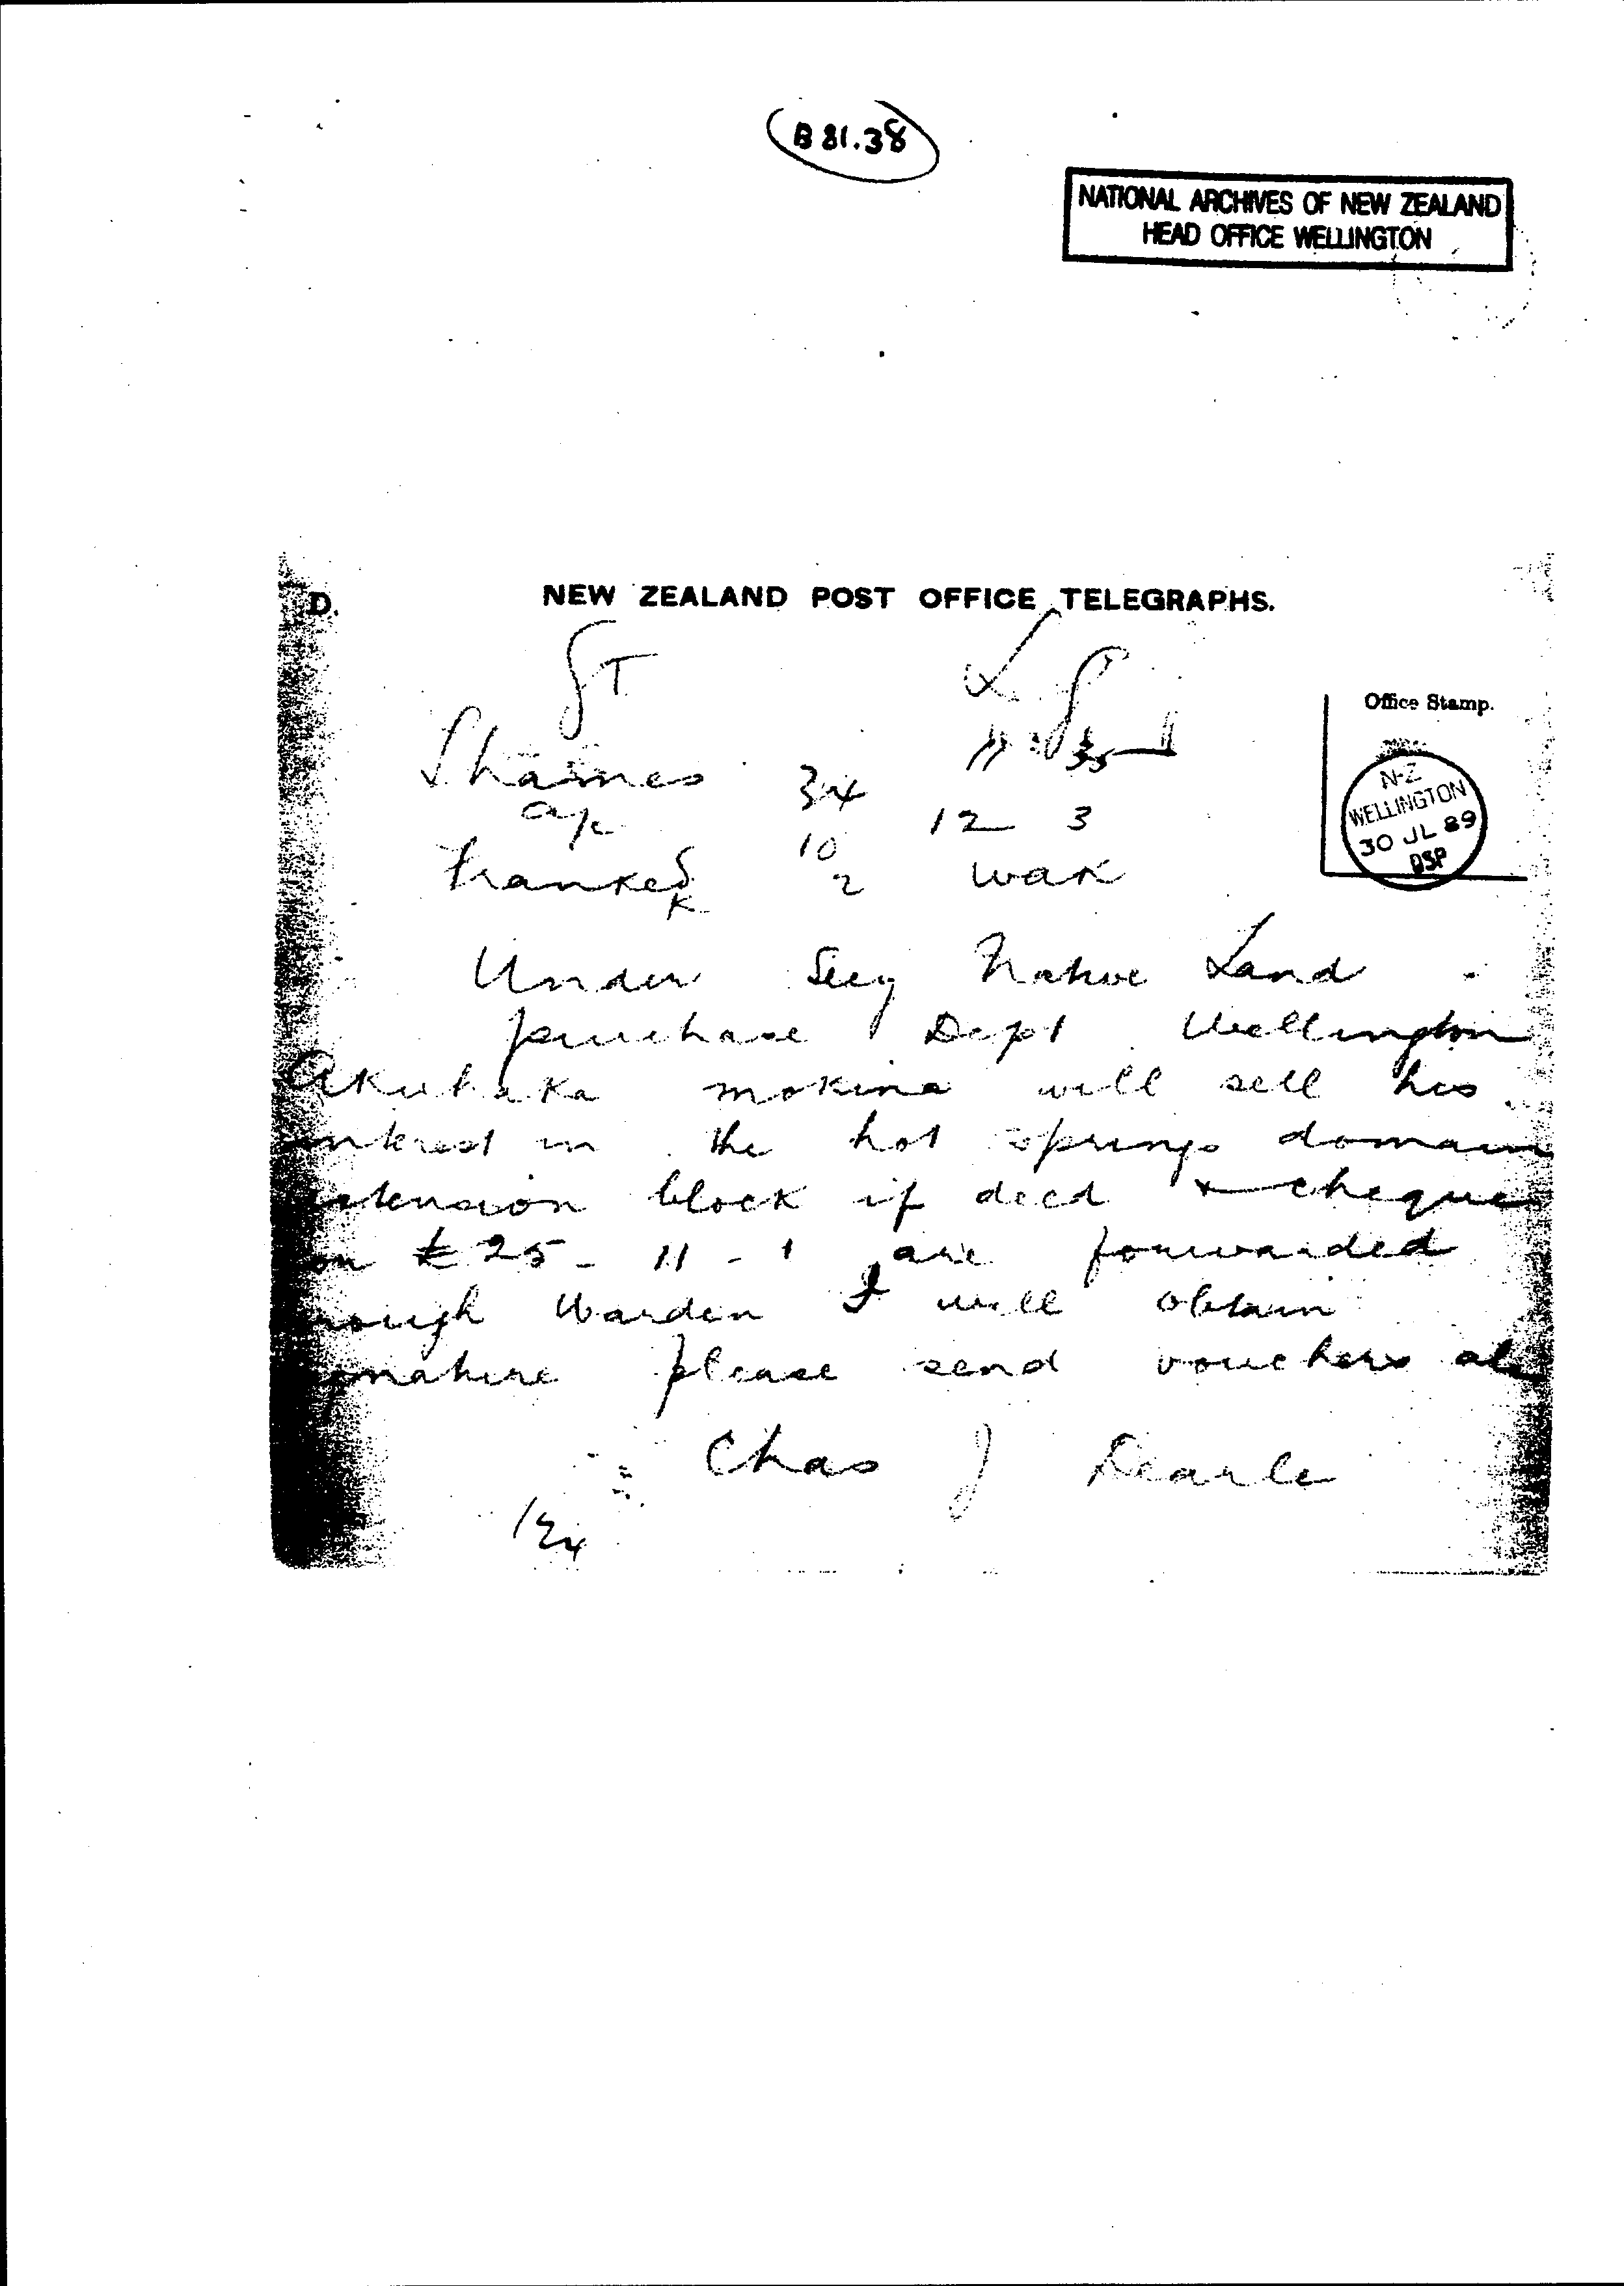 B 81.38
NATIONAL ARCHIVES OF NEW ZEALAND
HEAD OFFICE WELLINGTON
D.
NEW ZEALAND POST OFFICE TELEGRAPHS.
Office Stamp.
Thames 34
a/c 12 3
N-Z
WELLINGTON
30 JL 89
DSP
10
Franked 2 wak
Under Secy Native Land
purchase Dept Wellington
Akuhaka mokina will sell his
interest in the hot springs domain
extension block if deed & cheque
£25 - 11 - 1 are forwarded
rough Warden I will obtain
gnature please send vouchers als
Chas J Dearle